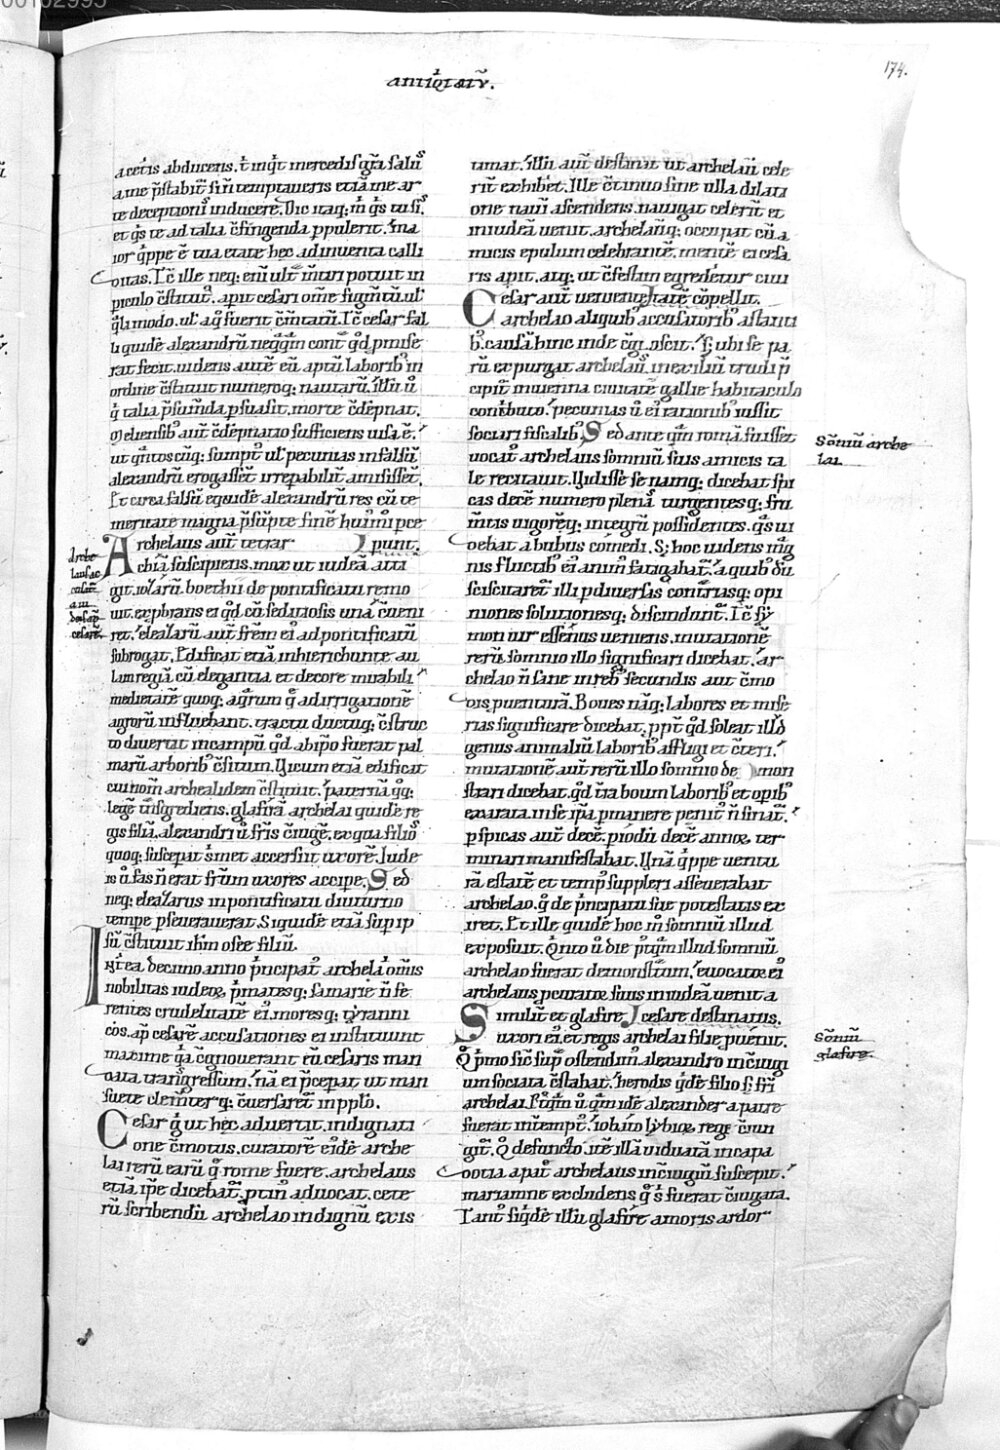 00102995
174.
antiq̇tatũ.
acetis abducens. t̃ inqt mercedis gr̃a salus̃
a me p̃stabit̃ si ñ temptaueris etiã me ar
te deceptionis inducere. Dic itaq; m̃ qs tu si.
et qs te ad talia c̃fingenda ppulerit. Ma
ior q̇ppe ẽ tua etate hec adinuenta calli
ditas. Tc̃ ille neq; eni ult̃ m̃tiri potuit in
piculo c̃stitut᷒. aprit cesari om̃e figm̃tũ. ul᷒
q̇li modo. ul᷒ a q̇ fuerit c̃m̃tatũ. Tc̃ cesar fal
li quidẽ alexandrũ
rat fecit. uidens autẽ eũ aptũ laborib᷒ in
ordine c̃stituit numeroq; nautarũ. Illũ ũ
q̇ talia p̃sum̃da p̃suasit. morte c̃dẽpnat.
Meliensib᷒ aut̃ c̃dẽpnatio sufficiens uisa ẽ.
ut q̃ntoscũq; sumpt᷒ ul᷒ pecunias in falsũ
alexandrũ erogassẽt irrepabilit̃ amisissẽt.
Et circa falsũ eqeuidẽ alexandrũ res eũ te
meritate magna p̃sũpte finẽ hui᷒m̃i p̃ce
Archelaus aut̃ tetrar punt.
chiã suscipiens. mox ut iudeã atti
git. ioazarũ boethii de pontificatu remo
uit. exp̃brans ei qd̃ cũ seditiosis una c̃ueni
ret. eleazarũ aut̃ fr̃em ei᷒ ad pontificatũ
subrogat. Edificat etiã in hierichunte au
lam regiã cũ elegantia et decore mirabili
medietatẽ quoq; aq̃rum q̃ ad irrigationẽ
agrorũ influebant. tractu ductuq; c̃struc
to diuertit in campũ qd̃ ab ip̃o fuerat pal
marũ arborib᷒ c̃situm. Vicum etiã edificat
cui nom̃ archelaidem c̃stituit. paternã q̃q;
legẽ t̃nsgrediens. glafirã archelai quidẽ re
gis filiã. alexandri ũ fr̃is c̃iugẽ. ex qua filios
quoq; suscepat s̃imet accersiit uxorẽ. Iude
is ũ fas ñ erat fr̃um uxores accipe. Sed
neq; eleazarus in pontificatu diuturno
tempe p̃seuerauerat. Siquidẽ etiã sup ip
sũ c̃stituit ih̃m osee filiũ.
Igr̃ ea decimo anno p̃ncipat᷒ archelai om̃is
nobilitas iudeoꝝ p̃matesq; samarie ñ fe
rentes crudelitatẽ ei᷒ moresq; tẏranni
cos. ap̃ cesarẽ accusationes ei instituunt
maxime q̃a c̃gnouerant eũ cesaris man
data transgressum. nã ei p̃ceperat ut man
suete clem̃terq; c̃uersaret̃ in pplo.
Cesar q̇ ut hec aduertit. indignati
one c̃motus. curatorẽ eidẽ arche
lai rerũ earũ q̃ rome fuere. archelaus
etiã ip̃e dicebat̃. p̃tin᷒ aduocat. cete
rũ scribendũ archelao indignũ exis
timat. Illũ aut̃ destinat ut archelaũ cele
rit̃ exhibet. Ille c̃tinuo sine ulla dilati
one nauĩ ascendens. nauigat celerit̃ et
in iudeã uenit. archelaũq; occupat cũ a
micis epulum celebrantẽ. mentẽ ei cesa
ris aprit. atq; ut c̃festim egredet̃ur cum
Cesar aut̃ uenientẽ tatẽ c̃pellit.
archelao aliquib᷒ accusatorib᷒ astanti
b᷒. causã hinc inde c̃gnoscit. s; ubi se pa
rũ expurgat archelaus᷒. in exiliũ trudi p̃
cipit̃ in uienna ciuitatẽ gallie habitaculo
contributo. pecunias ũ ei᷒ rationib᷒ iussit
sociari fiscalib᷒. Sed ante q̃m romã fuisset
uocat᷒ archelaus somniũ suis amicis ta
le recitauit. Vidisse se namq; dicebat spi
cas decẽ numero plenas᷒ turgentesq; fru
m̃tis uigorẽq; integrũ possidentes. q̃s ui
debat a bubus comedi. S; hoc uidens mag
nis fluctib᷒ ei᷒ anim᷒ fatigabat̃. a quib᷒ dũ
sciscitaret̃ illi p diuersas contr̃iasq; opi
niones solutionesq; discindunt̃. Tc̃ sẏ
mon uir essenus ueniens. mutationẽ
rerũ somnio illo significari dicebat. ar
chelao ñ sane in reb᷒ secundis aut c̃mo
dis puenturã. Boues nãq; labores et mise
rias significare dicebat. ppt̃ qd̃ soleat illd̃
genus animaliũ laborib᷒ affligi et c̃teri.
mutationẽ aut̃ rerũ illo somnio de mon
strari dicebat. qd̃ t̃ra boum laborib᷒ et opib᷒
exarata. in se ip̃a pmanere penit᷒ ñ sinat̃.
p spicas aut̃ decẽ. piodũ decẽ annoꝝ ter
minari manifestabat. Vnã q̇ppe uentu
rã estatẽ et temp᷒ suppleri asseuerabat
archelao. q̃ de p̃ncipatu sue potestatis ex
iret. Et ille quidẽ hoc m̃ somniũ illud
exposuit. Qinto ũ die p᷒tq̃m illud somniũ
archelao fuerat demonst̃tum. euocator ei᷒
archelaus pcurator suus in iudeã uenit a
Similit̃ et glafire cesare destinatus.
uxori ei᷒. et regis archelai filie. puenit.
Q̃ p̃mo sic̃ sup᷒ ostendim᷒. alexandro in c̃iugi
um sociata c̃stabat. herodis q̃dẽ filio s; fr̃i
archelai. P᷒tq̃m ũ q̃m idẽ alexander a patre
fuerat int̃empt᷒. iobito lẏbioꝝ rege c̃iun
git̃. Q̃ defuncto. itẽ illã uiduatã in capa
docia apat᷒ archelaus in c̃iugiũ suscepit.
mariamne excludens q̃ s᷒ fuerat c̃iugata.
Tant᷒ siq̇dẽ illũ glafire amoris ardor
Arche
laus ac
cusat̃
au
do ap̃
cesarẽ
Sõniũ arche
lai.
Sõniũ
glafire.